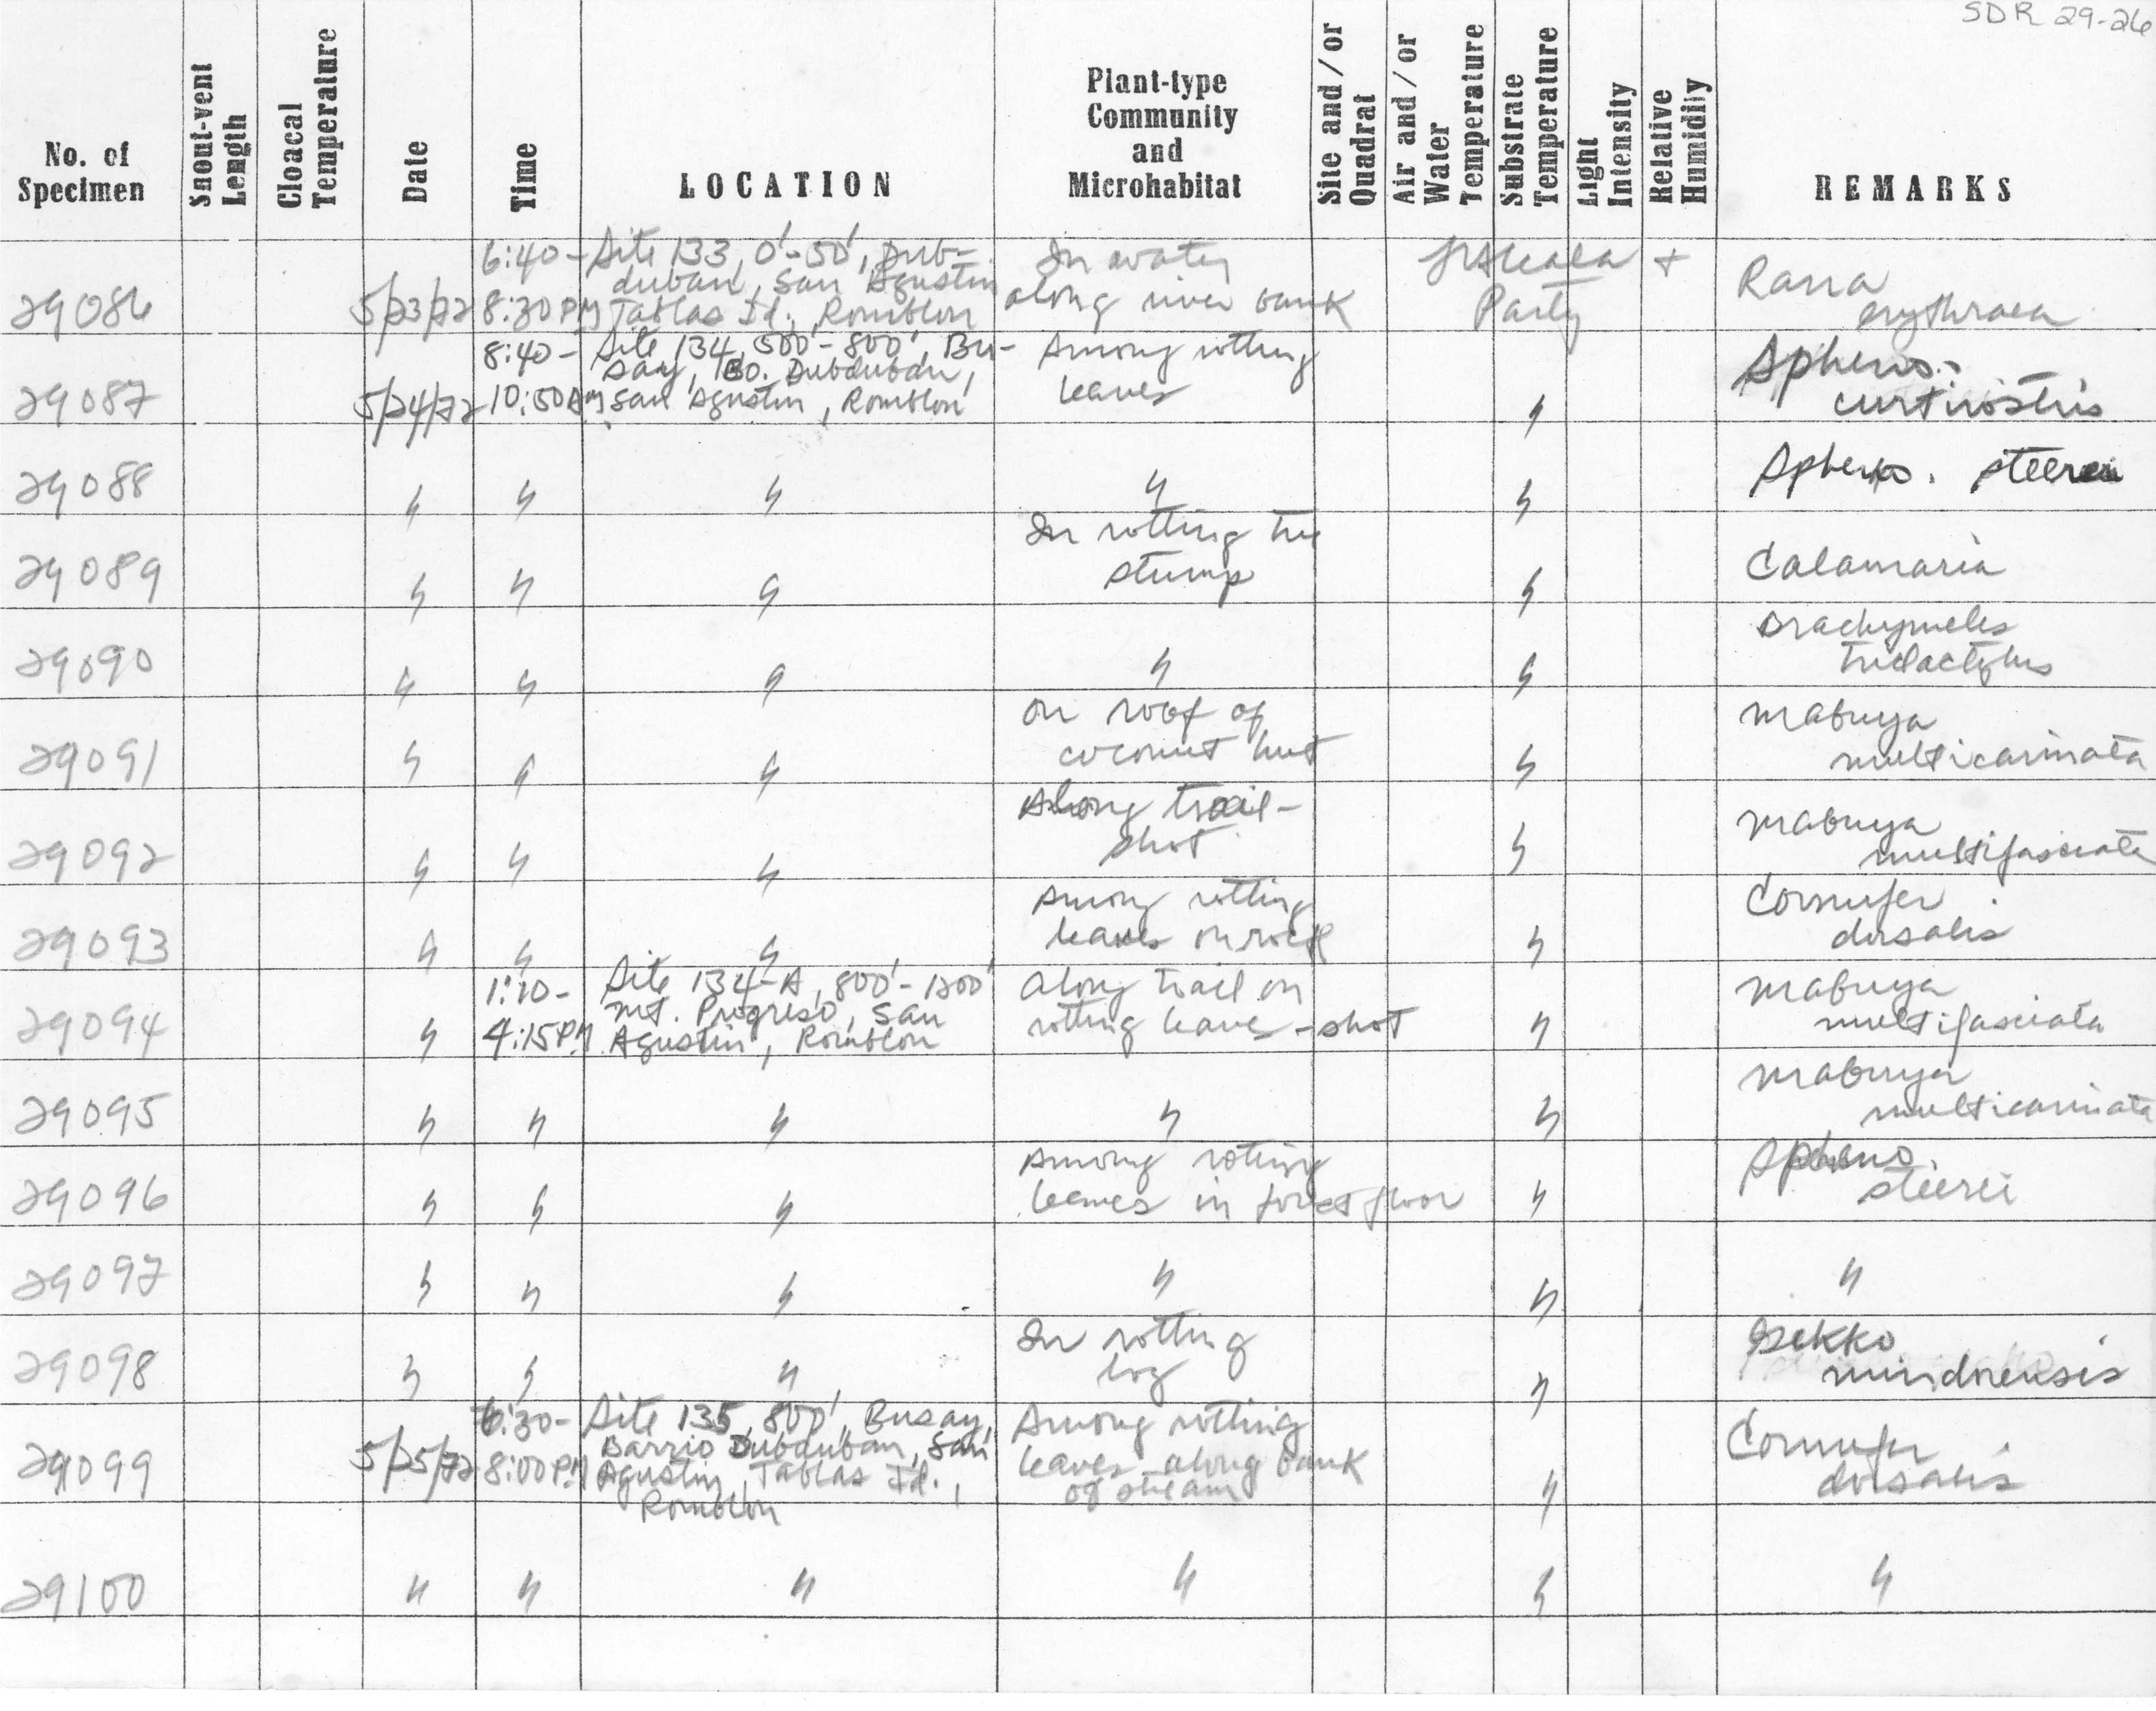 SDR 29-26
No. of Specimen
Snout-vent Length
Cloacal Temperature
Date
Time
LOCATION
Plant-type Community and Microhabitat
Site and/or Quadrat
Air and/or Water Temperature
Substrate Temperature
Light Intensity
Relative Humidity
REMARKS
29086 5/23/72 6:40-8:30PM Site 133, 0'-50', Dubduban, San Agustin Tablas Id., Romblon In water along river bank + Party Rana erythraea
29087 5/24/72 8:40-10:50AM Site 134, 500'-800', Busay, Bo. Dubduban, San Agustin, Romblon Among rotting leaves " Spheno. curtirostris
29088 " " " " " Spheno. steerei
29089 " " " In rotting tree stump " Calamaria
29090 " " " " " Brachymeles tridactylus
29091 " " " On roof of coconut hut " Mabuya multicarinata
29092 " " " Along trail-shot " Mabuya multifasciata
29093 " " " Among rotting leaves on rock " Cornufer dorsalis
29094 " 1:10-4:15PM Site 134-A, 800'-1200' Mt. Progreso, San Agustin, Romblon Along trail on rotting leave-shot " Mabuya multifasciata
29095 " " " " " Mabuya multicarinata
29096 " " " Among rotting leaves in forest floor " Spheno. steerei
29097 " " " " " "
29098 " " " In rotting log " Gekko mindorensis
29099 5/25/72 6:30-8:00PM Site 135, 800', Busay, Barrio Dubduban, San Agustin, Tablas Id., Romblon Among rotting leaves along bank of stream " Cornufer dorsalis
29100 " " " " " "